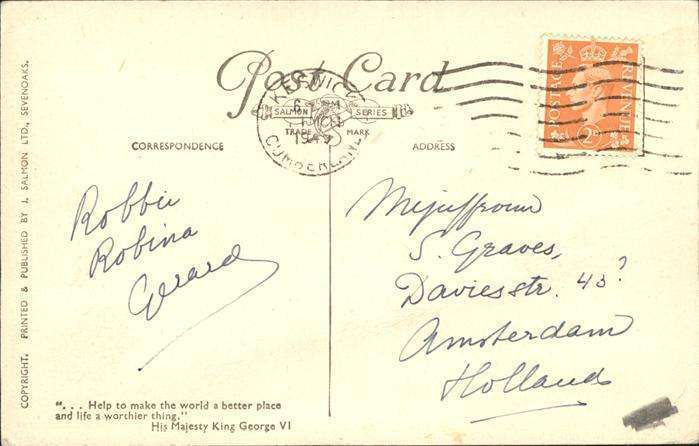 Post Card
SALMON SERIES
TRADE MARK
CORRESPONDENCE
ADDRESS
KESWICK
CUMBERLAND
1949
POSTAGE
REVENUE
2D
Robbie
Robina
Gerard
Mejuffrouw
S. Graves,
Daviesstr. 43?
Amsterdam
Holland
"... Help to make the world a better place
and life a worthier thing."
His Majesty King George VI
COPYRIGHT. PRINTED & PUBLISHED BY J. SALMON LTD., SEVENOAKS.